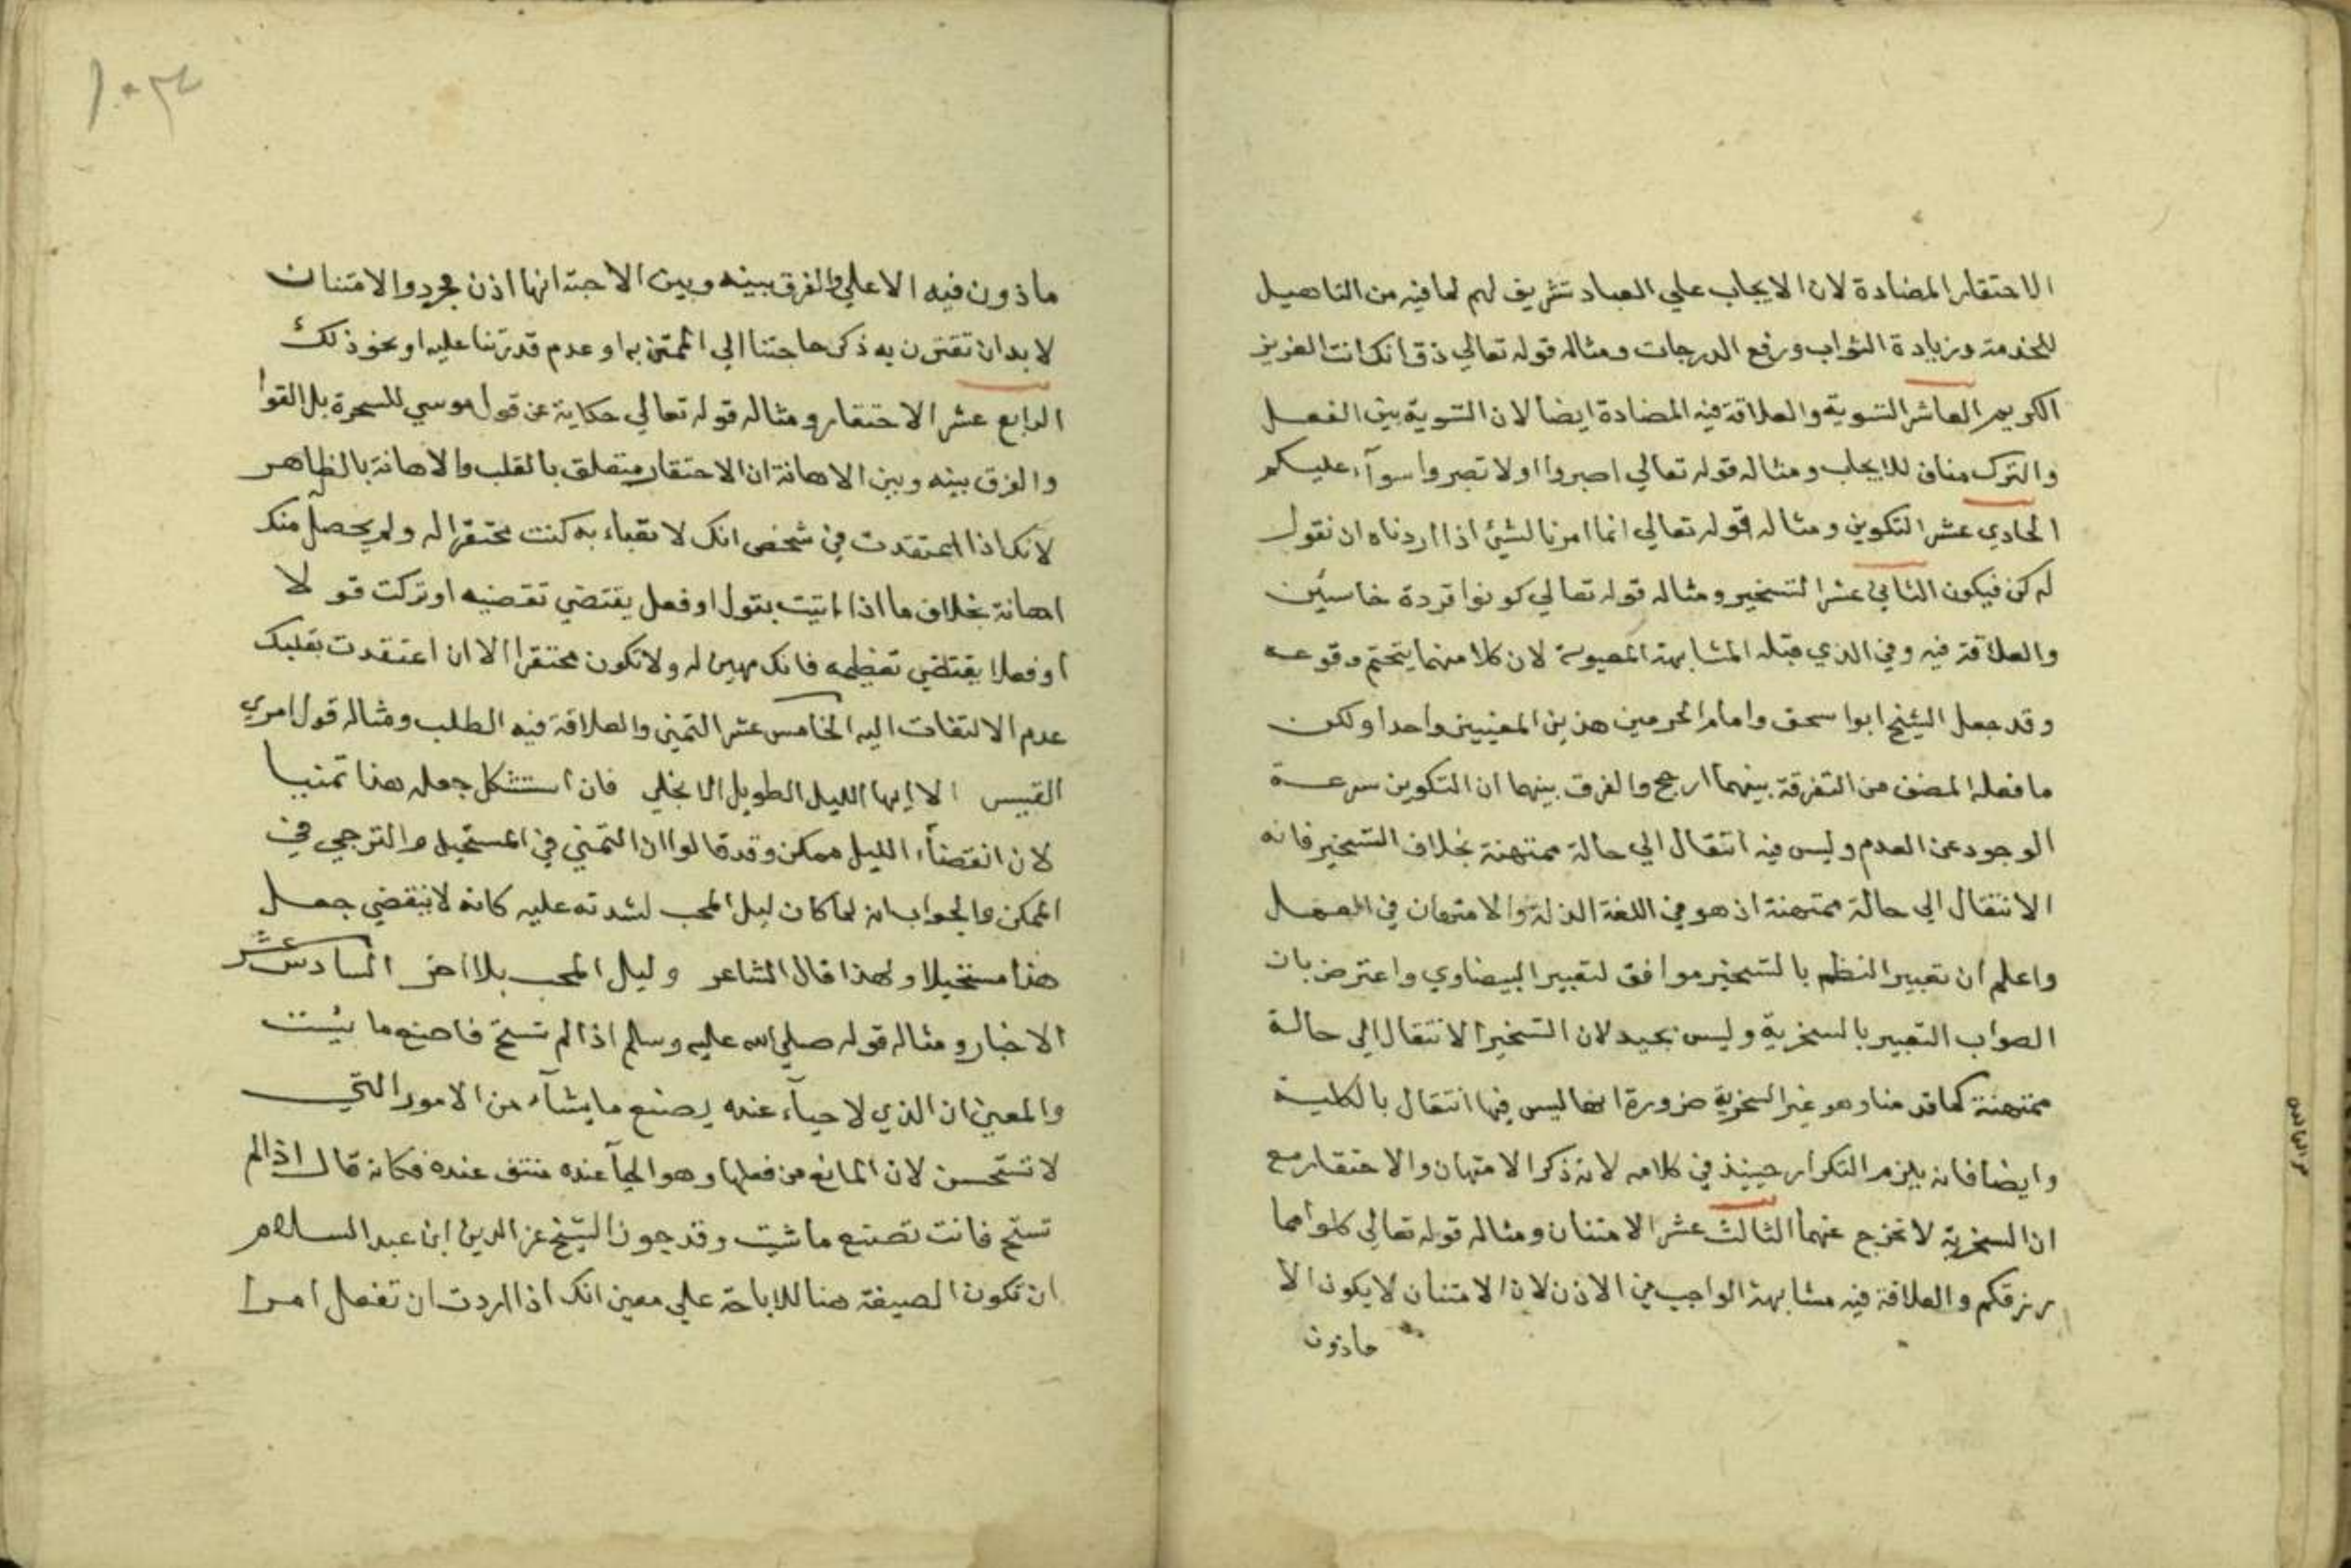 الاحتقار المضادة لان الايجاب علي العباد تشريف لهم لما فيه من التاهيل
للخدمة وزيادة الثواب ورفع الدرجات ومثاله قوله تعالي ذق انك انت العزيز
الكريم العاشر التسوية والعلاقة فيه المضادة ايضا لان التسوية بين الفعل
والترك مناف للايجاب ومثاله قوله تعالي اصبروا اولا تصبروا سوآء عليكم
الحادي عشر التكوين ومثاله قوله تعالي انما امرنا لشيئ اذا اردناه ان نقول
له كن فيكون الثاني عشر التسخير ومثاله قوله تعالي كونوا قردة خاسئين
والعلاقة فيه وفي الذي قبله المشابهة المعنوية لان كلا منهما يتحتم وقوعه
وقد جعل الشيخ ابوا سحق وامام الحرمين هذين المعنيين واحدا ولكن
ما فعله المصنف من التفرقة بينهما ارجح والفرق بينهما ان التكوين سرعة
الوجود عن العدم وليس فيه انتقال الي حالة ممتهنة بخلاف التسخير فانه
الانتقال الي حالة ممتهنة اذ هو في اللغة الذلة والامتهان في العمل
واعلم ان تعبير النظم بالتسخير موافق لتعبير البيضاوي واعترض بان
الصواب التعبير بالسخرية وليس بجيد لان التسخير الانتقال الي حالة
ممتهنة كما قدمنا وهو غير السخرية ضرورة انها ليس فيها انتقال بالكلية
وايضا فانه يلزم التكرار حينيذ في كلامه لانه ذكر الامتهان والاحتقار مع
ان السخرية لا تخرج عنهما الثالث عشر الامتنان ومثاله قوله تعالي كلوا مما
رزقكم والعلاقة فيه مشابهة الواجب في الاذن لان الامتنان لا يكون الا
ماذون
١٠٣٤
ماذون فيه الاعلي والفرق بينه وبين الاباحة انها اذن مجرد والامتنان
لا بد ان تقترن به ذكر حاجتنا الي الممتن به او عدم قدرتنا عليه او نحو ذلك
الرابع عشر الاحتقار ومثاله قوله تعالي حكاية عن قول موسي للسحرة بل القوا
والفرق بينه وبين الاهانة ان الاحتقار متعلق بالقلب والاهانة بالظاهر
لانك اذا اعتقدت في شخص انك لا تعباء به كنت محتقرا له ولم يحصل منك
اهانة بخلاف ما اذا اتيت بقول او فعل يقتضي تقضيه او تركت قولا
او فعلا يقتضي تعظيمه فانك مهين له ولا تكون محتقرا الا ان اعتقدت بقلبك
عدم الالتفات اليه الخامس عشر التمني والعلاقة فيه الطلب ومثاله قول امري
القييس الا ايها الليل الطويل الا انجلي فان استشكل جعله هذا تمنيا
لان انقضاء الليل ممكن وقد قالوا ان التمني في المستحيل والترجي في
الممكن والجواب انه لما كان ليل المحب لشدته عليه كانه لا ينقضي جعل
هذا مستحيلا ولهذا قال الشاعر وليل المحب بلا اخر السادس عشر
الاخبار ومثاله قوله صلي الله عليه وسلم اذا لم تستح فاصنع ما شئت
والمعني ان الذي لا حيآء عنده يصنع ما يشآء من الامور التي
لا تستحسن لان المانع من فعلها وهو الحيآ عنده منتف عنده فكانه قال اذا لم
تستح فانت تصنع ما شيت وقد جوز الشيخ عز الدين ابن عبد السلام
ان تكون الصيغة هنا للاباحة علي معني انك اذا اردت ان تفعل امرا